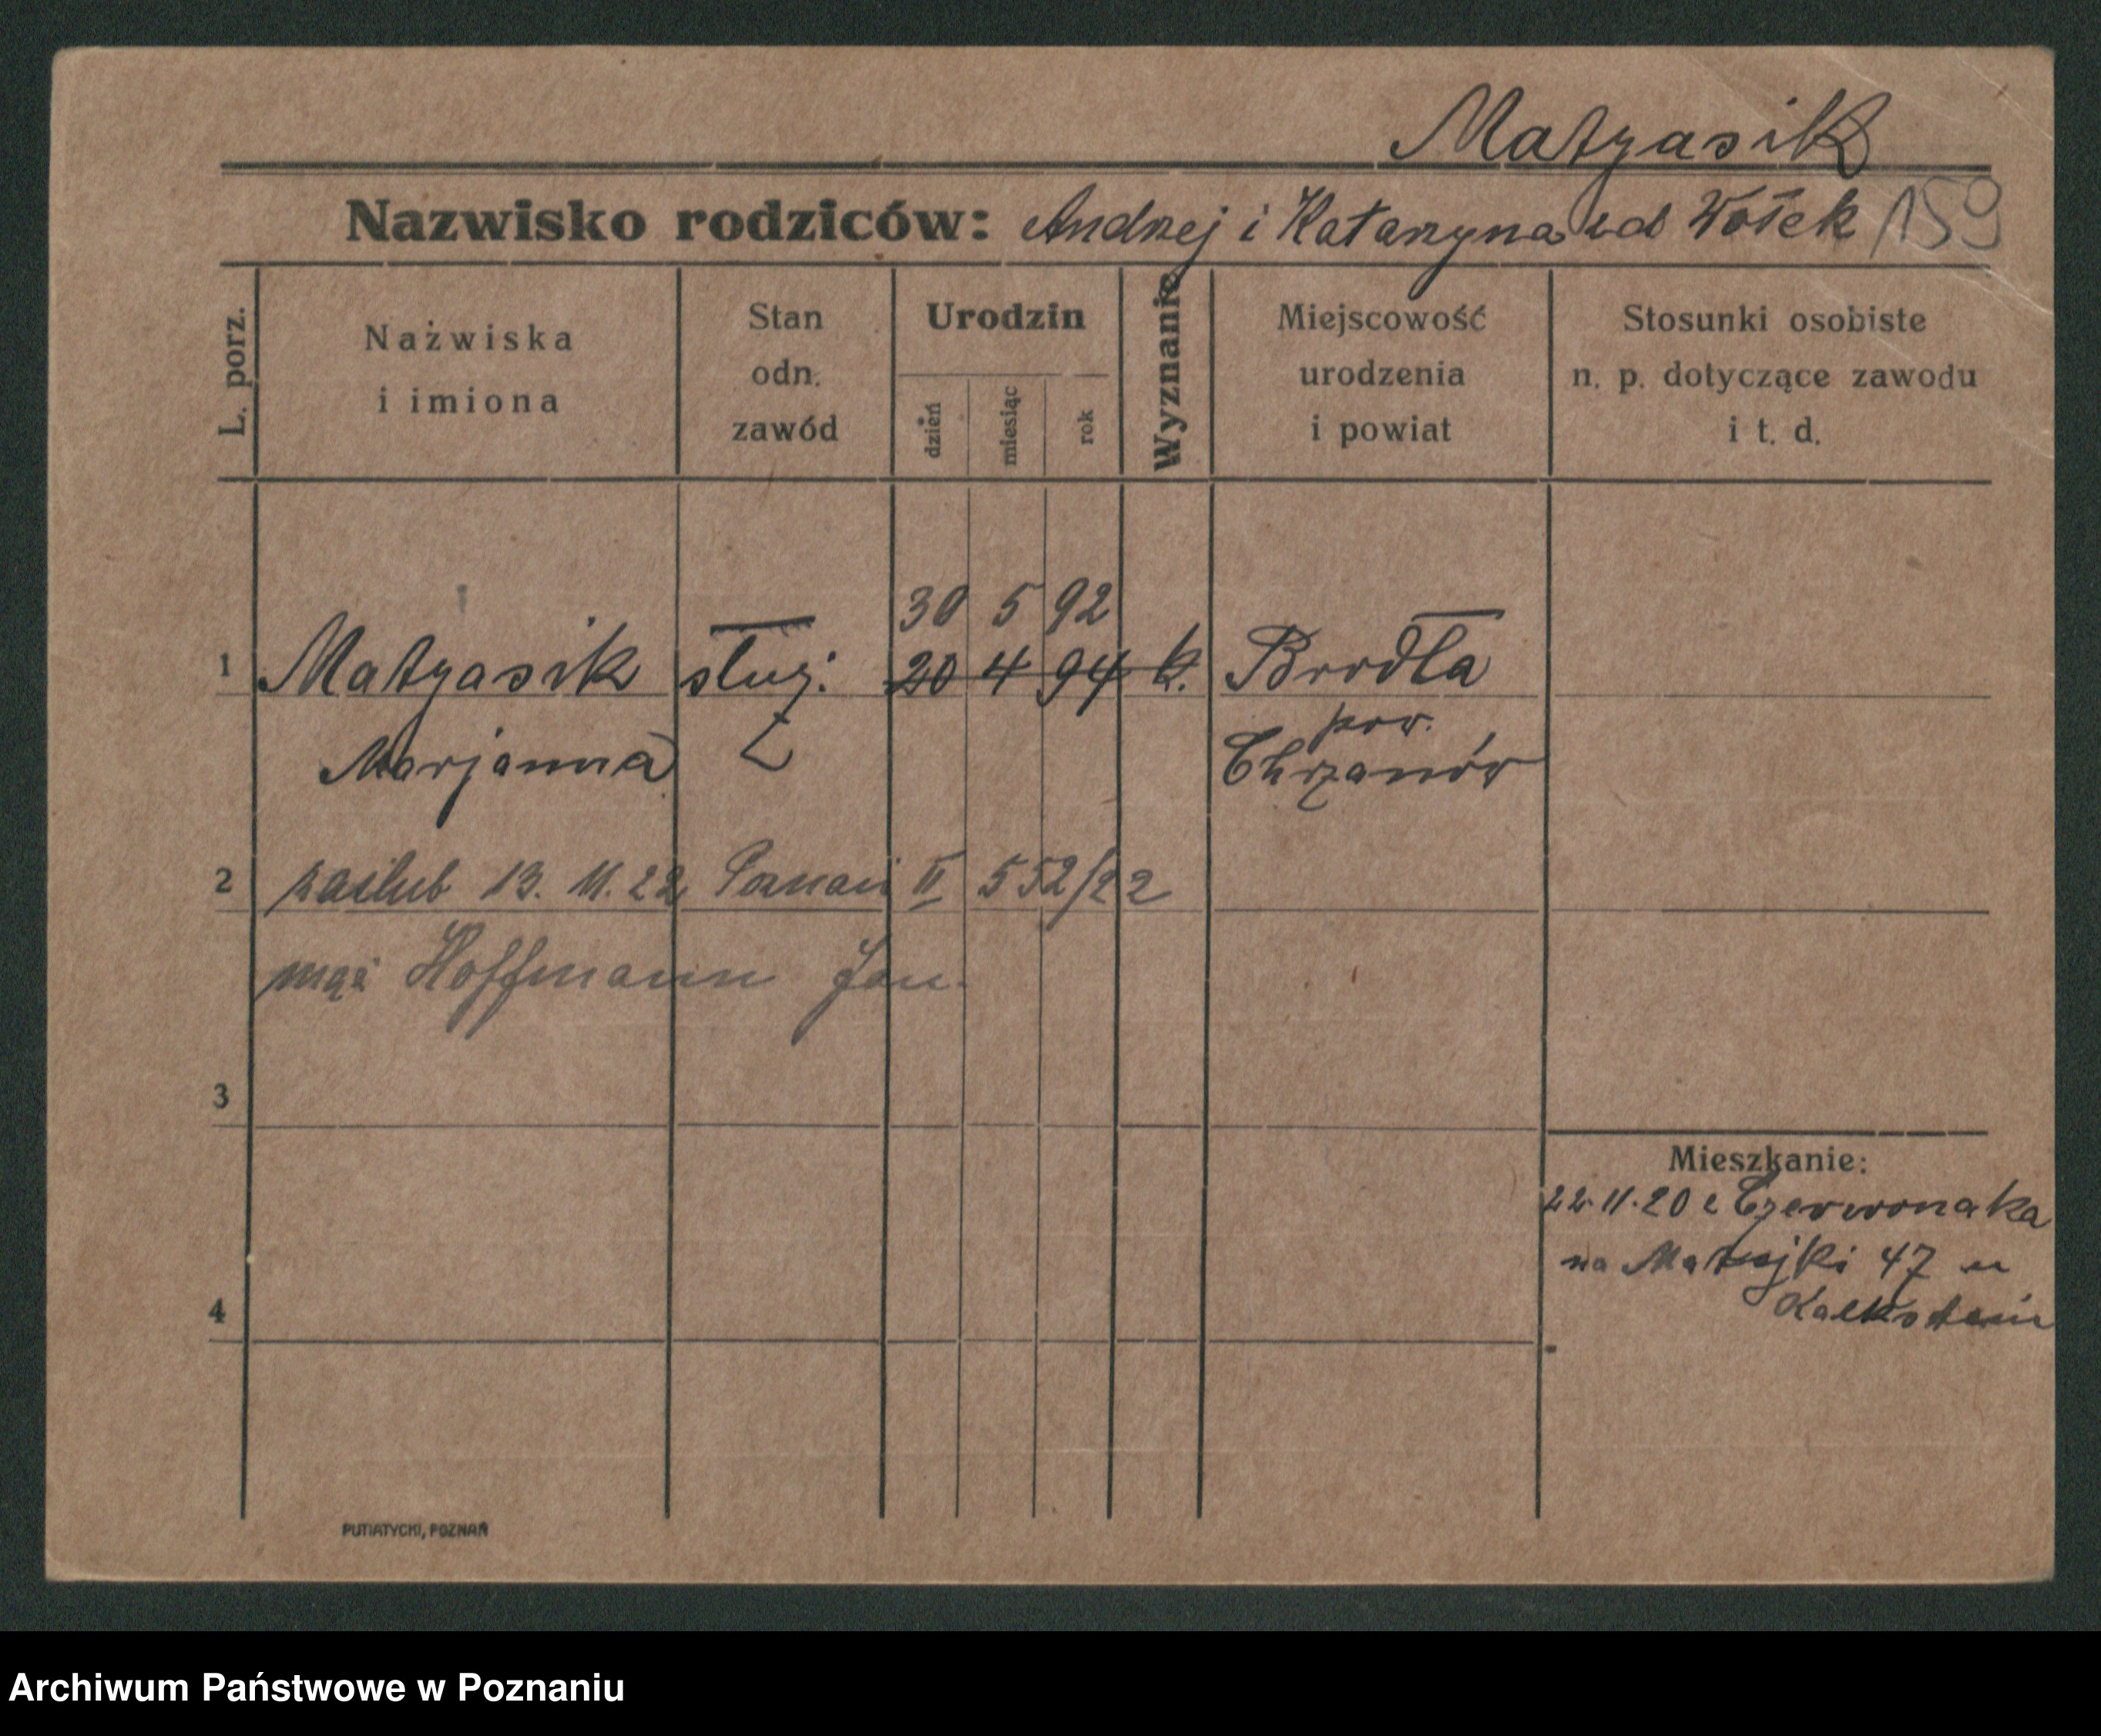 Matyasik
Nazwisko rodziców: Andrzej i Katarzyna zd Wołek 159
L. porz.
Nazwiska
i imiona
Stan
odn.
zawód
Urodzin
dzień
miesiąc
rok
Wyznanie
Miejscowość
urodzenia
i powiat
Stosunki osobiste
n. p. dotyczące zawodu
i t. d.
30 5 92
1 Matyasik służ. 20 4 94 k. Brodła
pow.
Marjanna Chrzanów
2 zaślub 13. 11. 22 Poznań II 552/22
mąż Hoffmann Jan.
3
Mieszkanie:
22.11.20 z Czerwonaka
na Matejki 47 u
Kalkstein
4
PUTIATYCKI, POZNAŃ
Archiwum Państwowe w Poznaniu